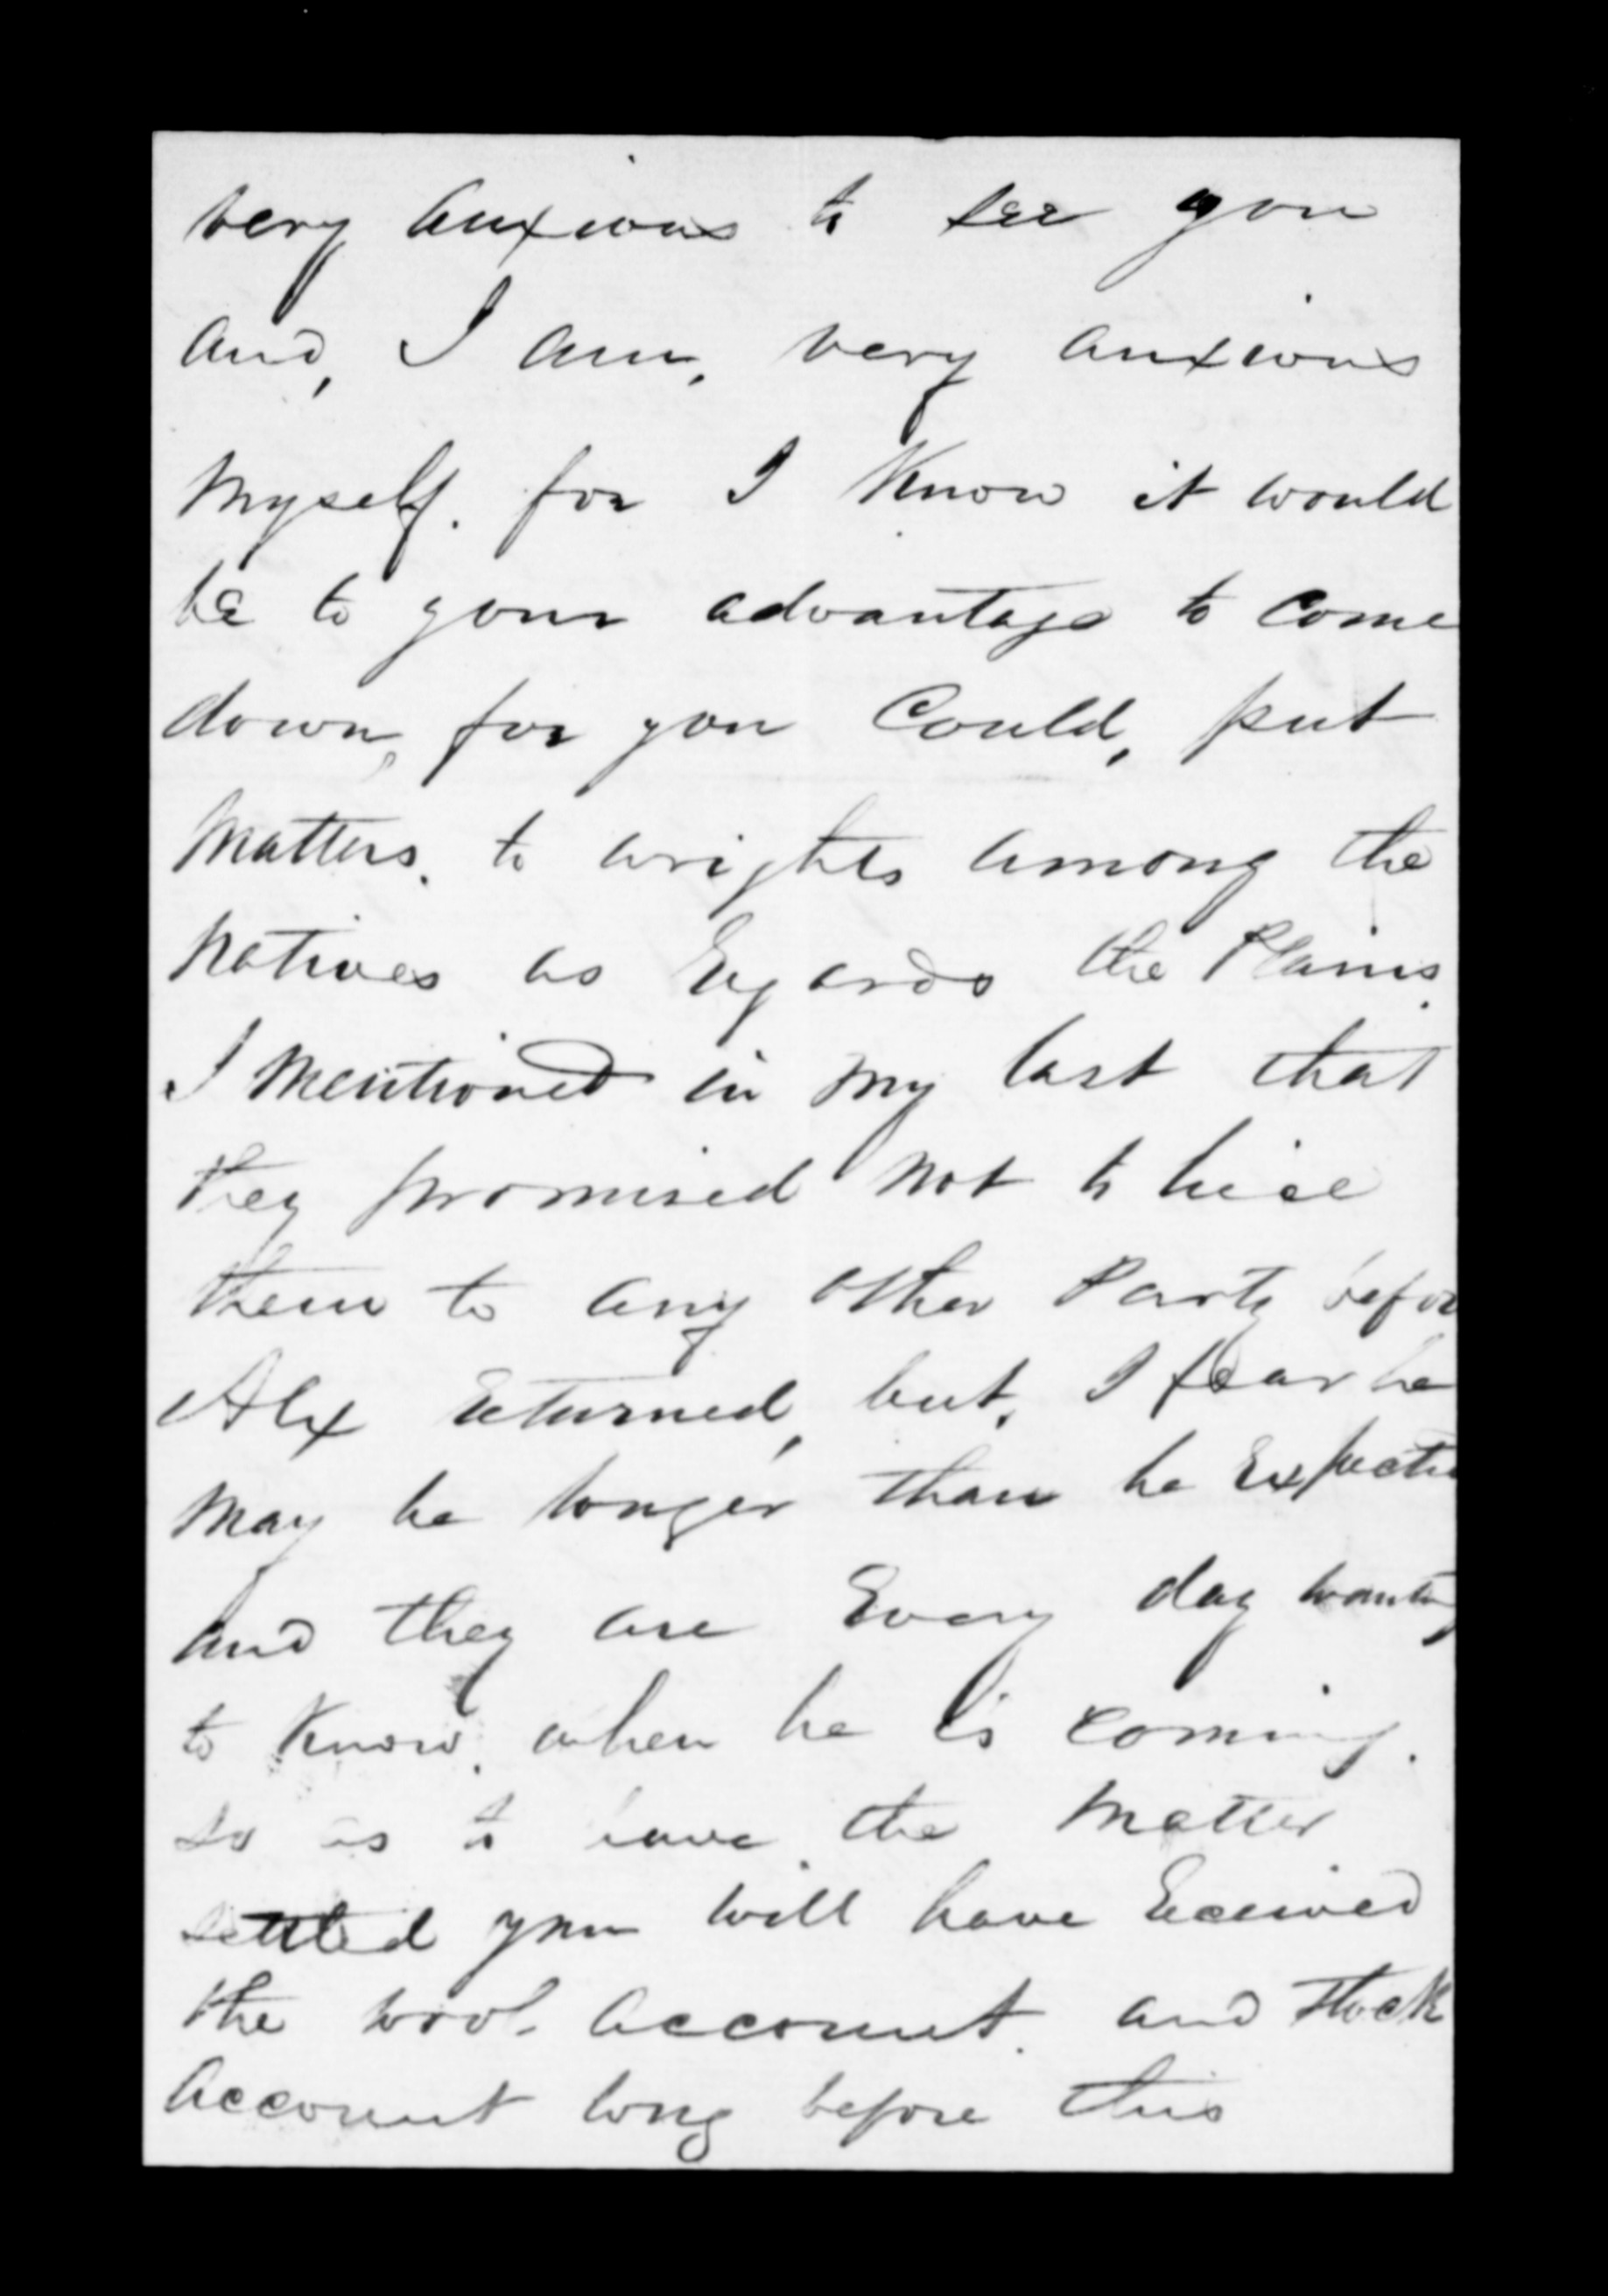 very anxious to see you
and, I am, very anxious
myself. for I Know it would
be to your advantage to come
down, for you Could, put
matters. to wrights among the
natives as Regards the Plains.
I mentioned in my last that
they promised not to hire
them to any other Party befor
Alex returned, but, I fear he
may be longer than he Expects
and they are Every day wanting
to Know. when he is coming.
so as to have the matter
settled you will have Received
the wool. account. and Stock
account long before this